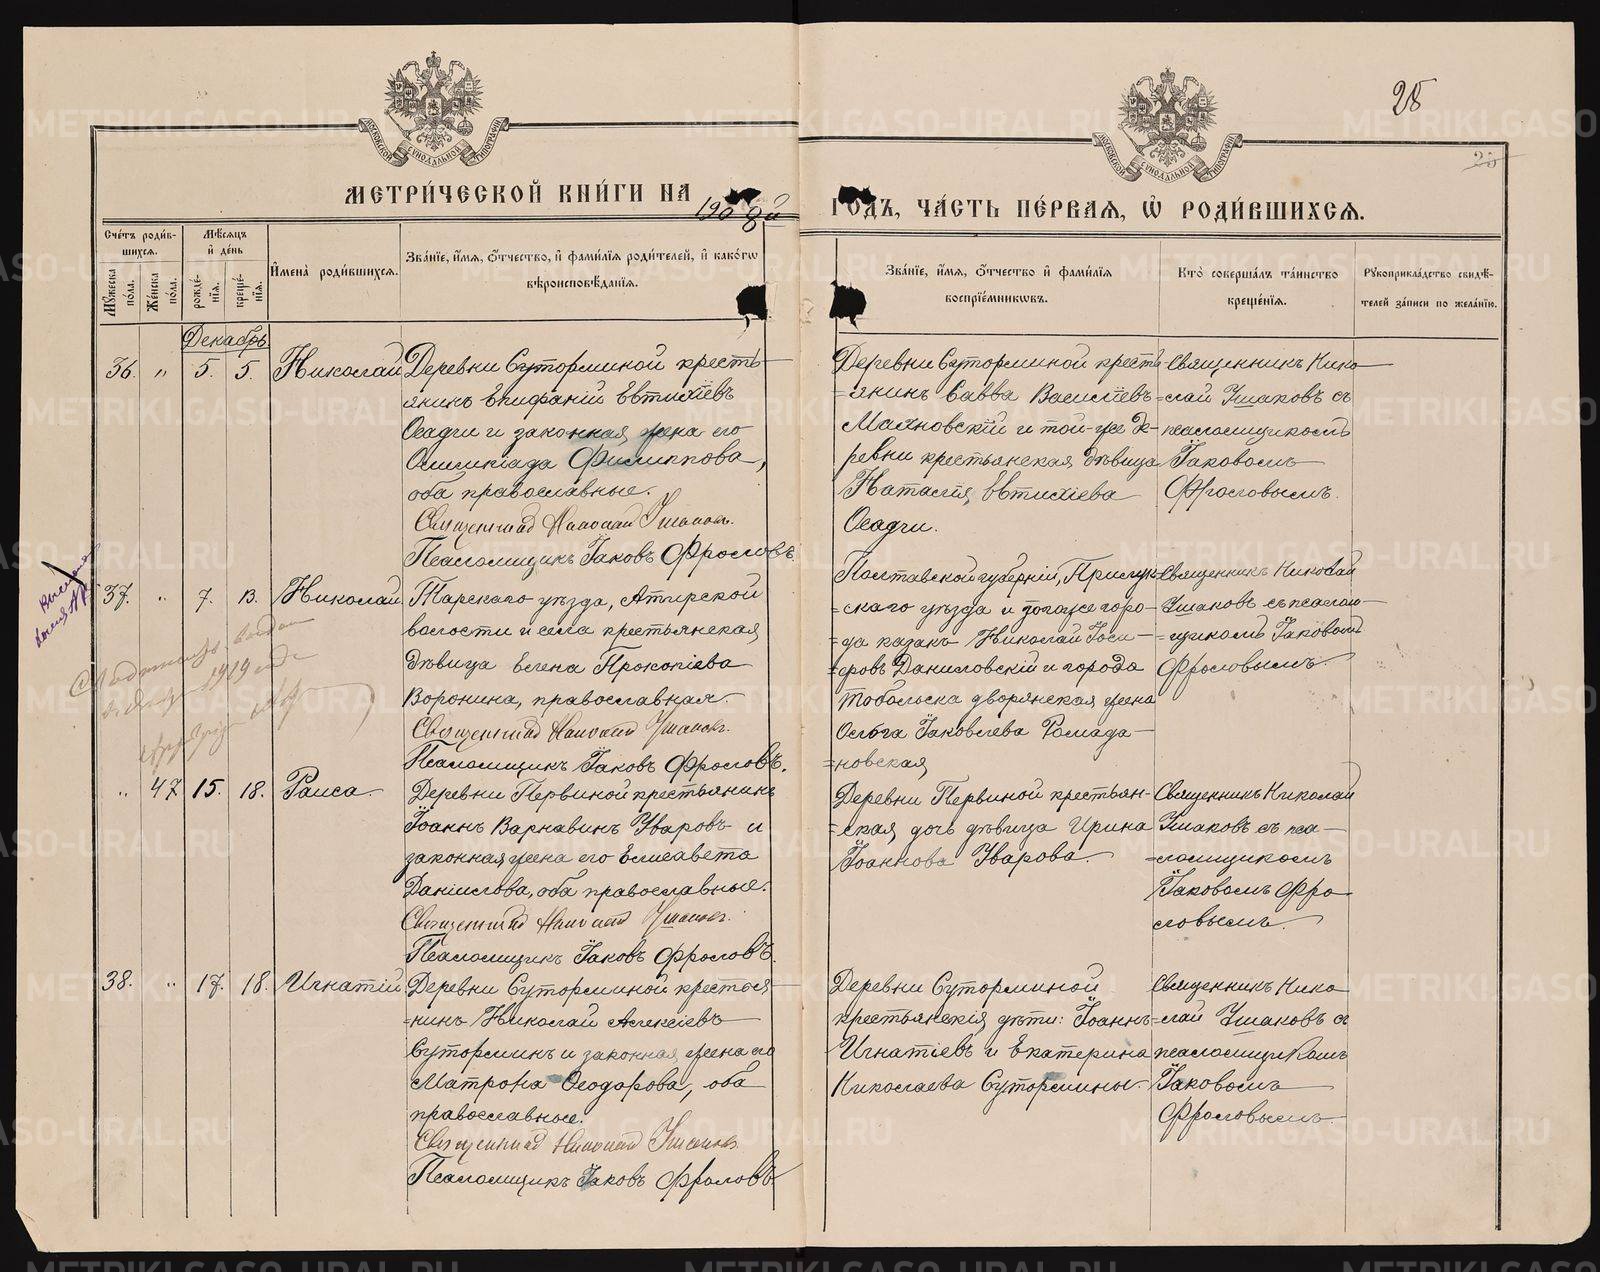 28
25
МОСКОВСКОЙ СѴНОДАЛЬНОЙ ТИПОГРАФІИ
МОСКОВСКОЙ СѴНОДАЛЬНОЙ ТИПОГРАФІИ
МЕТРИ́ЧЕСКОЙ КНИ́ГИ НА 1908й
ГОДЪ, ЧА́СТЬ ПЕ́РВАЯ, Ѡ҆ РОДИ́ВШИХСѦ.
Сче́тъ роди́в-
шихсѧ.
Мѣ́сѧцъ
и҆ де́нь
Мꙋ́жеска
по́ла.
Же́нска
по́ла.
рожде́-
нїѧ.
креще́-
нїѧ.
И҆мена̀ роди́вшихсѧ.
Зва́нїе, и҆́мѧ, о҆́тчество, и҆ фами́лїѧ роди́телей, и҆ како́гѡ
вѣроисповѣ́данїѧ.
Зва́нїе, и҆́мѧ, о҆́тчество и҆ фами́лїѧ
воспрїе́мникѡвъ.
Кто̀ соверша́лъ та́инство
креще́нїѧ.
Рꙋкоприкла́дство свидѣ́-
телей за́писи по жела́нїю.
Декабрь
36. " 5. 5. Николай
Деревни Суторминой кресть-
янинъ Епифаній Евтихіевъ
Осадчи и законная жена его
Олимпіада Филиппова,
оба православные.
Священникъ Николай Ушаковъ.
Псаломщикъ Іаковъ Фроловъ.
Деревни Суторминой кресть-
=янинъ Савва Василіевъ
Маяновскій и той-же де-
ревни крестьянская дѣвица
Наталія Евтихіева
Осадчи.
Священникъ Нико-
=лай Ушаковъ съ
псаломщикомъ
Іаковомъ
Фроловымъ.
37. " 7. 13. Николай
Тарскаго уѣзда, Атирской
волости и села крестьянская
дѣвица Елена Прокопіева
Воронина, православная.
Священникъ Николай Ушаковъ.
Псаломщикъ Іаковъ Фроловъ.
Полтавской губерніи, Прилук-
=скаго уѣзда и того же горо-
=да казакъ Николай Іоси-
=фовъ Даниловскій и города
Тобольска дворянская жена
Ольга Іаковлева Ромада-
=новская
Священникъ Николай
Ушаковъ съ псалом-
=щикомъ Іаковомъ
Фроловымъ.
1919 года
" 47 15. 18. Раиса.
Деревни Первиной крестьянинъ
Іоаннъ Варнавинъ Уваровъ и
законная жена его Елисавета
Даніилова, оба православные.
Священникъ Николай Ушаковъ.
Псаломщикъ Іаковъ Фроловъ.
Деревни Первиной крестьян-
=ская дочь дѣвица Ирина
Іоаннова Уварова.
Священникъ Николай
Ушаковъ съ пса-
=ломщикомъ
Іаковомъ Фро-
ловымъ.
38. " 17. 18. Игнатій
Деревни Суторминой крестья-
=нинъ Николай Алексіевъ
Суторминъ и законная жена его
Матрона Ѳеодорова, оба
православные.
Священникъ Николай Ушаковъ
Псаломщикъ Іаковъ Фроловъ
Деревни Суторминой
крестьянскія дѣти: Іоаннъ
Игнатіевъ и Екатерина
Николаева Сутормины.
Священникъ Нико-
=лай Ушаковъ съ
псаломщикомъ
Іаковомъ
Фроловымъ.
METRIKI.GASO-URAL.RU